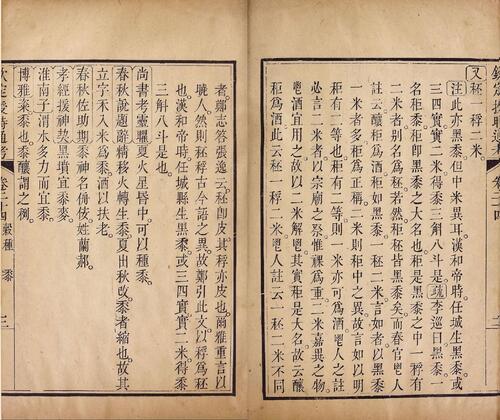 又秠一稃二米。
註此亦黑黍但中米異耳漢和帝時任城生黑黍或
三四實實二米得黍三斛八斗是疏李巡曰黑黍一
名秬黍秬卽黑黍之大名也秠是黑黍之中一稃有
二米者别名為秠若然秬秠皆黑黍矣而春官鬯人
註云釀秬為酒秬如黑黍一秠二米言如者以黑黍
一米者多秬為正稱二米則秬中之異故言如以明
秬有二等也秬有二等則一米亦可為酒鬯人之註
必言二米者以宗廟之祭惟祼為重二米嘉異之物
鬯酒宜用之故以二米解鬯其實秬是大名故云釀
秬為酒此云秠一稃二米鬯人註云一秠二米不同
者鄭志答張逸云秠卽皮其稃亦皮也爾雅重言以
曉人然則秠稃古今語之異故鄭引此文以稃為秠
也漢和帝時任城縣生黑黍或三四實實二米得黍
三斛八斗是也
尚書考靈曜夏火星昬中可以種黍。
春秋說題辭精移火轉生黍夏出秋改黍者縮也故其
立字禾入米為黍酒以扶老。
春秋佐助期黍神名倚姓蘭郝。
孝經援神契黑墳宜黍麥。
淮南子渭水多力而宜黍。
博雅粢黍也釀謂之䅣。
授時通考 卷二十四 穀種 黍 三